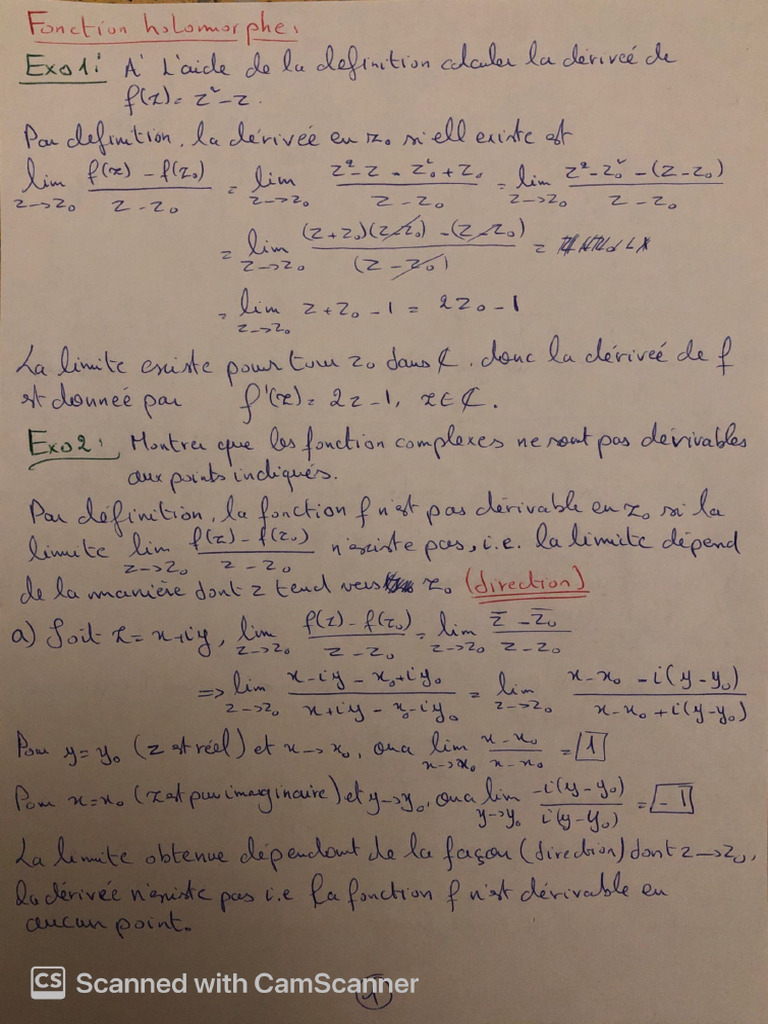 Fonction holomorphe.
Exo1: A' L'aide de la definition calculer la dériveé de
f(z) = z² - z.
Par definition, la dériveé en z₀ si ell existe est
lim z→z₀ (f(z) - f(z₀))/(z - z₀) = lim z→z₀ (z² - z - z₀² + z₀)/(z - z₀) = lim z→z₀ (z² - z₀² - (z - z₀))/(z - z₀)
= lim z→z₀ ((z + z₀)(z - z₀) - (z - z₀))/(z - z₀) =
= lim z→z₀ z + z₀ - 1 = 2z₀ - 1
La limite existe pour tour z₀ dans ℂ. donc la dériveé de f
est donneé par f'(z) = 2z - 1, z ∈ ℂ.
Exo2: Montrer que les fonction complexes ne sont pas dérivables
aux points indiqués.
Par définition, la fonction f n'est pas dérivable en z₀ si la
limite lim z→z₀ (f(z) - f(z₀))/(z - z₀) n'existe pas, i.e. la limite dépend
de la manière dont z tend vers z₀ (direction)
a) Soit z = x+iy, lim z→z₀ (f(z) - f(z₀))/(z - z₀) = lim z→z₀ (z̄ - z̄₀)/(z - z₀)
⇒ lim z→z₀ (x - iy - x₀ + iy₀)/(x + iy - x₀ - iy₀) = lim z→z₀ (x - x₀ - i(y - y₀))/(x - x₀ + i(y - y₀))
Pour y = y₀ (z est réel) et x → x₀, on a lim x→x₀ (x - x₀)/(x - x₀) = 1
Pour x = x₀ (z est pur imaginaire) et y → y₀, on a lim y→y₀ (-i(y - y₀))/(i(y - y₀)) = -1
La limite obtenue dépendant de la façon (direction) dont z → z₀,
la dérivée n'existe pas i.e la fonction f n'est dérivable en
aucun point.
1
CS Scanned with CamScanner